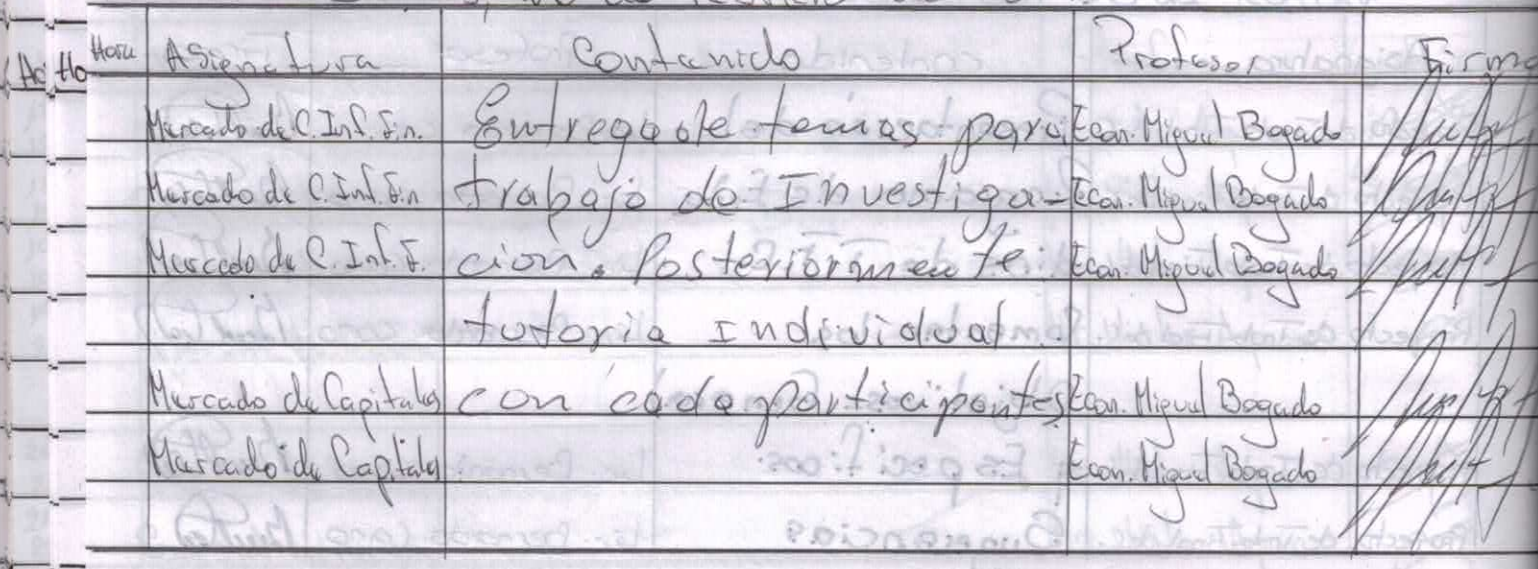 Hora Asignatura Contenido Profesor Firma
Mercado de C. Inf. Fin. Entrega de temas para Econ. Miguel Bogado
Mercado de C. Inf. Fin trabajo de Investiga- Econ. Miguel Bogado
Mercado de C. Inf. F. ción. Posteriormente Econ. Miguel Bogado
tutoria Individual
Mercado de Capitales con cada participantes Econ. Miguel Bogado
Mercado de Capitales Econ. Miguel Bogado